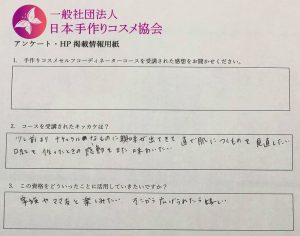 一般社団法人
日本手作りコスメ協会
アンケート・HP掲載情報用紙
1. 手作りコスメセルフコーディネーターコースを受講された感想をお聞かせください。
2. コースを受講されたキッカケは？
少し前より ナチュラルなものに興味が出てきて 直で肌につくものを見直したい
以前 作ったときの感動をまた味わいたい
3. この資格をどういったことに活用していきたいですか？
家族やママ友と楽しみたい そこから広げられたら嬉しい